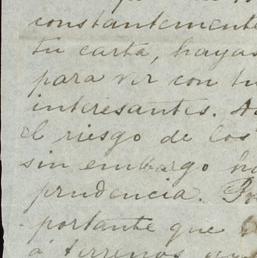 constantemente
tu carta, hayas
para vir con tu
interesantes.
el riesgo de los
sin embargo
prudencia.
portante que
á terrenos